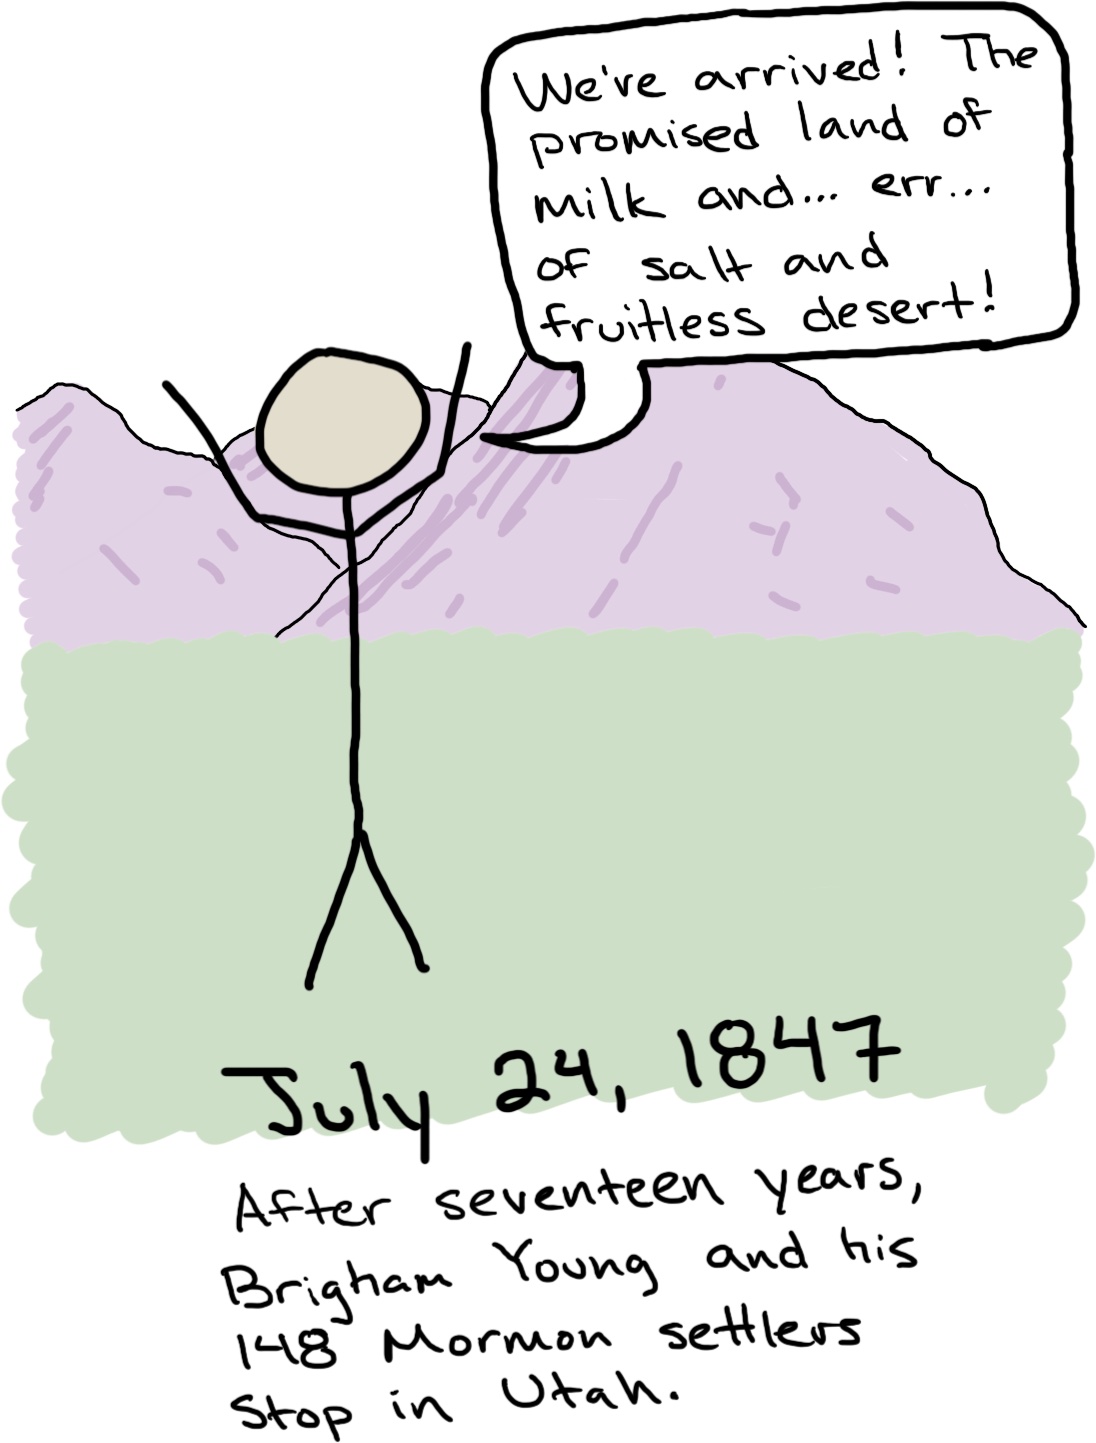 We've arrived! The
promised land of
milk and... err...
of salt and
fruitless desert!
July 24, 1847
After seventeen years,
Brigham Young and his
148 Mormon settlers
stop in Utah.